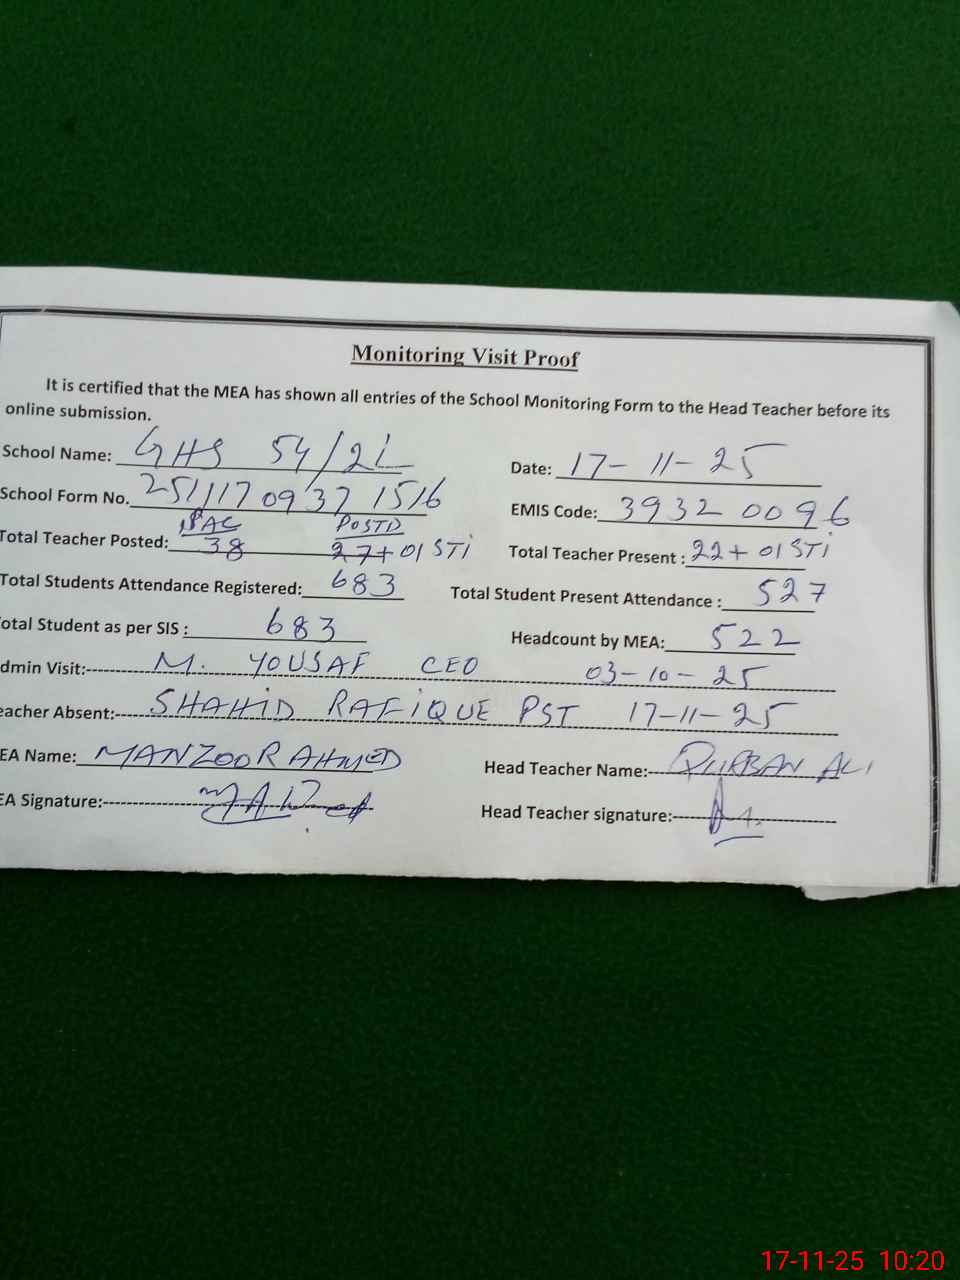 Monitoring Visit Proof
It is certified that the MEA has shown all entries of the School Monitoring Form to the Head Teacher before its
online submission.
School Name: GHS 54/2L Date: 17-11-25
School Form No. 251117 0937 1516 EMIS Code: 3932 0096
POSTD
Total Teacher Posted: 38 27+01 STi Total Teacher Present : 22+01 STi
Total Students Attendance Registered: 683 Total Student Present Attendance : 527
otal Student as per SIS : 683 Headcount by MEA: 522
dmin Visit: M. YOUSAF CEO 03-10-25
eacher Absent: SHAHID RAFIQUE PST 17-11-25
EA Name: MANZOOR AHMED Head Teacher Name: QURBAN ALI
EA Signature: Head Teacher signature:
17-11-25 10:20